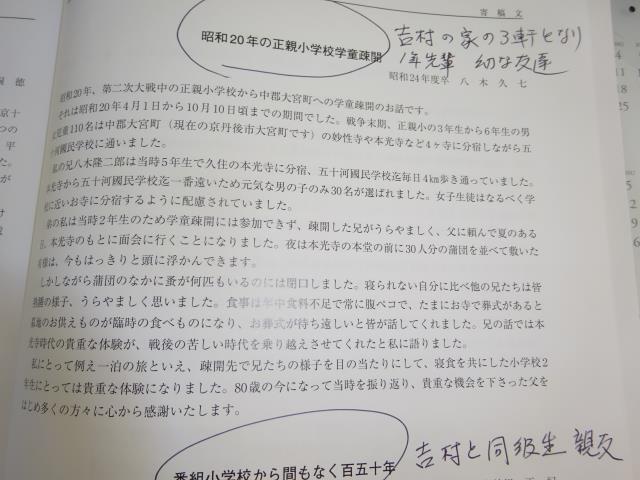 寄稿文
昭和20年の正親小学校学童疎開
吉村の家の3軒となり
1年先輩 幼な友達
昭和24年度卒 八木久七
昭和20年、第二次大戦中の正親小学校から中郡大宮町への学童疎開のお話です。
それは昭和20年4月1日から10月10日頃までの期間でした。戦争末期、正親小の3年生から6年生の男
女児童110名は中郡大宮町(現在の京丹後市大宮町です)の妙性寺や本光寺など4ヶ寺に分宿しながら五
十河國民学校に通いました。
私の兄八木隆二郎は当時5年生で久住の本光寺に分宿、五十河國民学校迄毎日4km歩き通っていました。
本光寺から五十河國民学校迄一番遠いため元気な男の子のみ30名が選ばれました。女子生徒はなるべく学
校に近いお寺に分宿するように配慮されていました。
弟の私は当時2年生のため学童疎開には参加できず、疎開した兄がうらやましく、父に頼んで夏のある
日、本光寺のもとに面会に行くことになりました。夜は本光寺の本堂の前に30人分の蒲団を並べて敷いた
有様は、今もはっきりと頭に浮かんできます。
しかしながら蒲団のなかに蚤が何匹もいるのには閉口しました。寝られない自分に比べ他の兄たちは皆
熟睡の様子、うらやましく思いました。食事は年中食料不足で常に腹ペコで、たまにお寺で葬式があると
墓地のお供えものが臨時の食べものになり、お葬式が待ち遠しいと皆が話してくれました。兄の話では本
光寺時代の貴重な体験が、戦後の苦しい時代を乗り越えさせてくれたと私に語りました。
私にとって例え一泊の旅といえ、疎開先で兄たちの様子を目の当たりにして、寝食を共にした小学校2
年生にとっては貴重な体験になりました。80歳の今になって当時を振り返り、貴重な機会を下さった父を
はじめ多くの方々に心から感謝いたします。
吉村と同級生 親友
番組小学校から間もなく百五十年